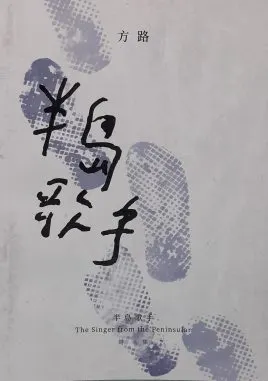 方路
半島
歌手
半島歌手
The Singer from the Peninsular